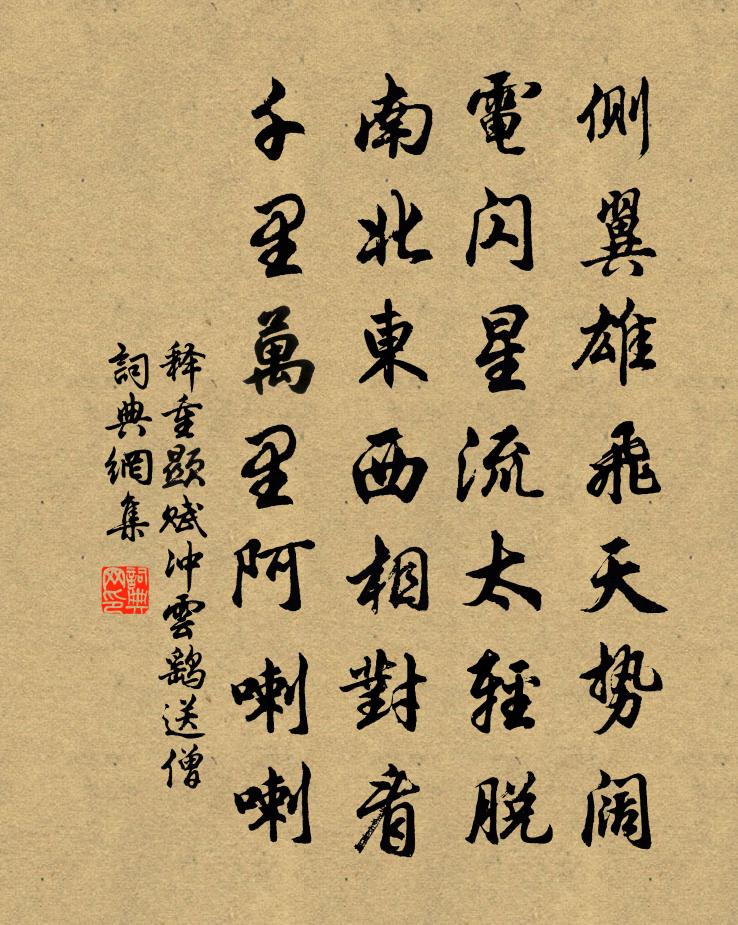 側翼雄飛天势阔
電閃星流太輕脱
南北東西相對看
千里萬里阿喇喇
释重顯赋冲雲鹞送僧
詞典網集
詞典网印